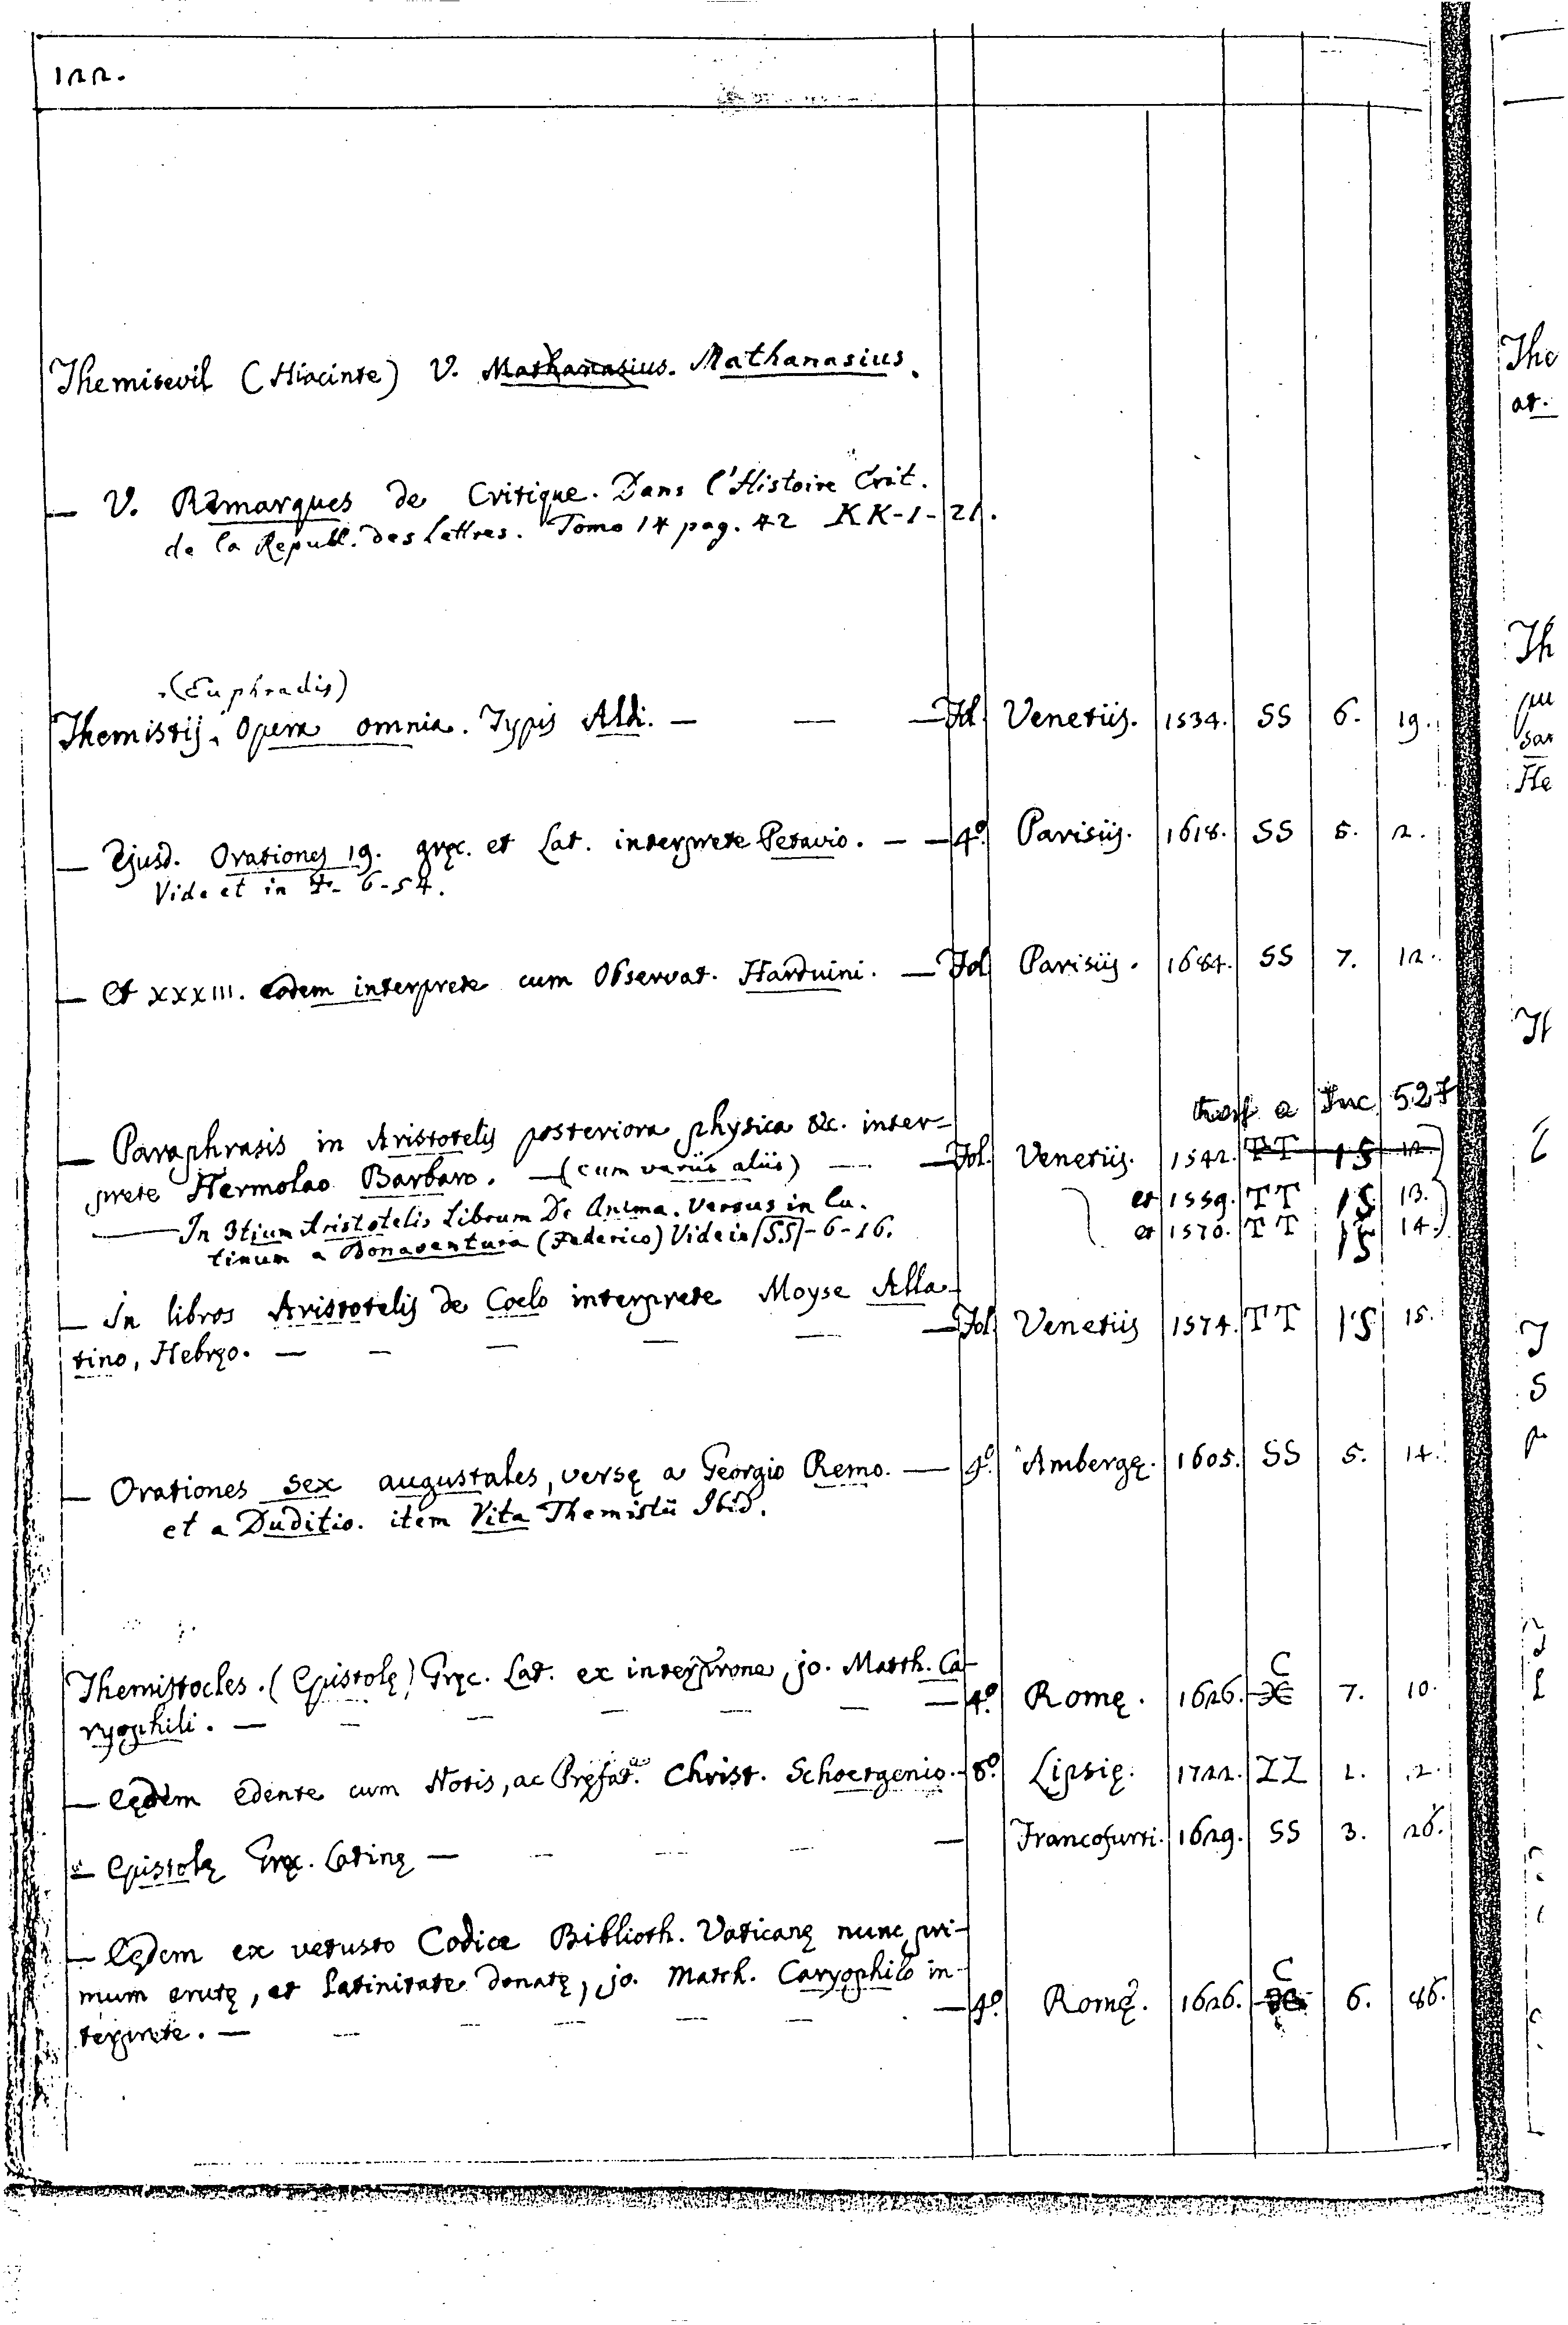 122.
Themisevil (Hiacinte) V. Mathanasius. Mathanasius.
— V. Remarques de Critique. Dans l'Histoire Crit.
de la Republ. des Lettres. Tomo 14 pag. 42 KK-1-21.
(Euphradis)
Themistij. Opera omnia. Typis Aldi. — — — Fol. Venetiis. 1534. SS 6. 19.
— Ejusd. Orationes 19. gręc. et Lat. interprete Petavio. — — 4.º Parisiis. 1618. SS 5. 2.
Vide et in F- 6-54.
— Et XXXIII. eodem interprete cum Observat. Harduini. — Fol Parisiis. 1684. SS 7. 12.
trasf a Inc 527
— Paraphrasis in Aristotelis posteriora physica &c. inter-
prete Hermolao Barbaro. — (cum variis aliis) — — Fol. Venetiis. 1542. TT 15 12.
et 1559. TT 15 13.
et 1570. TT 15 14.
— In 3tium Aristotelis Librum De Anima. Versus in la-
tinum a Bonaventura (Federico) Vide in SS-6-16.
— In libros Aristotelis de Coelo interprete Moyse Alla-
tino, Hebręo. — — — — — — Fol. Venetiis 1574. TT 15 15.
— Orationes sex augustales, versę a Georgio Remo. — 4.º Ambergę. 1605. SS 5. 14.
et a Duditio. item Vita Themistii Ibid.
Themistocles. (Epistolę) Gręc. Lat. ex interprone, jo. Matth. Ca-
ryophili. — — — — — — — 4.º Romę. 1626. C 7. 10.
— Eędem edente cum Notis, ac Pręfat. Christ. Schoetgenio. — 8.º Lipsię. 1722. ZZ 1. 2.
— Epistolę Gręc. Latinę — — — — — Francofurti. 1629. SS 3. 26.
— Eędem ex vetusto Codice Biblioth. Vaticanę nunc pri-
mum erutę, et Latinitate donatę, jo. Matth. Caryophilo in-
terprete. — — — — — — — 4.º Romę. 1626. C 6. 86.